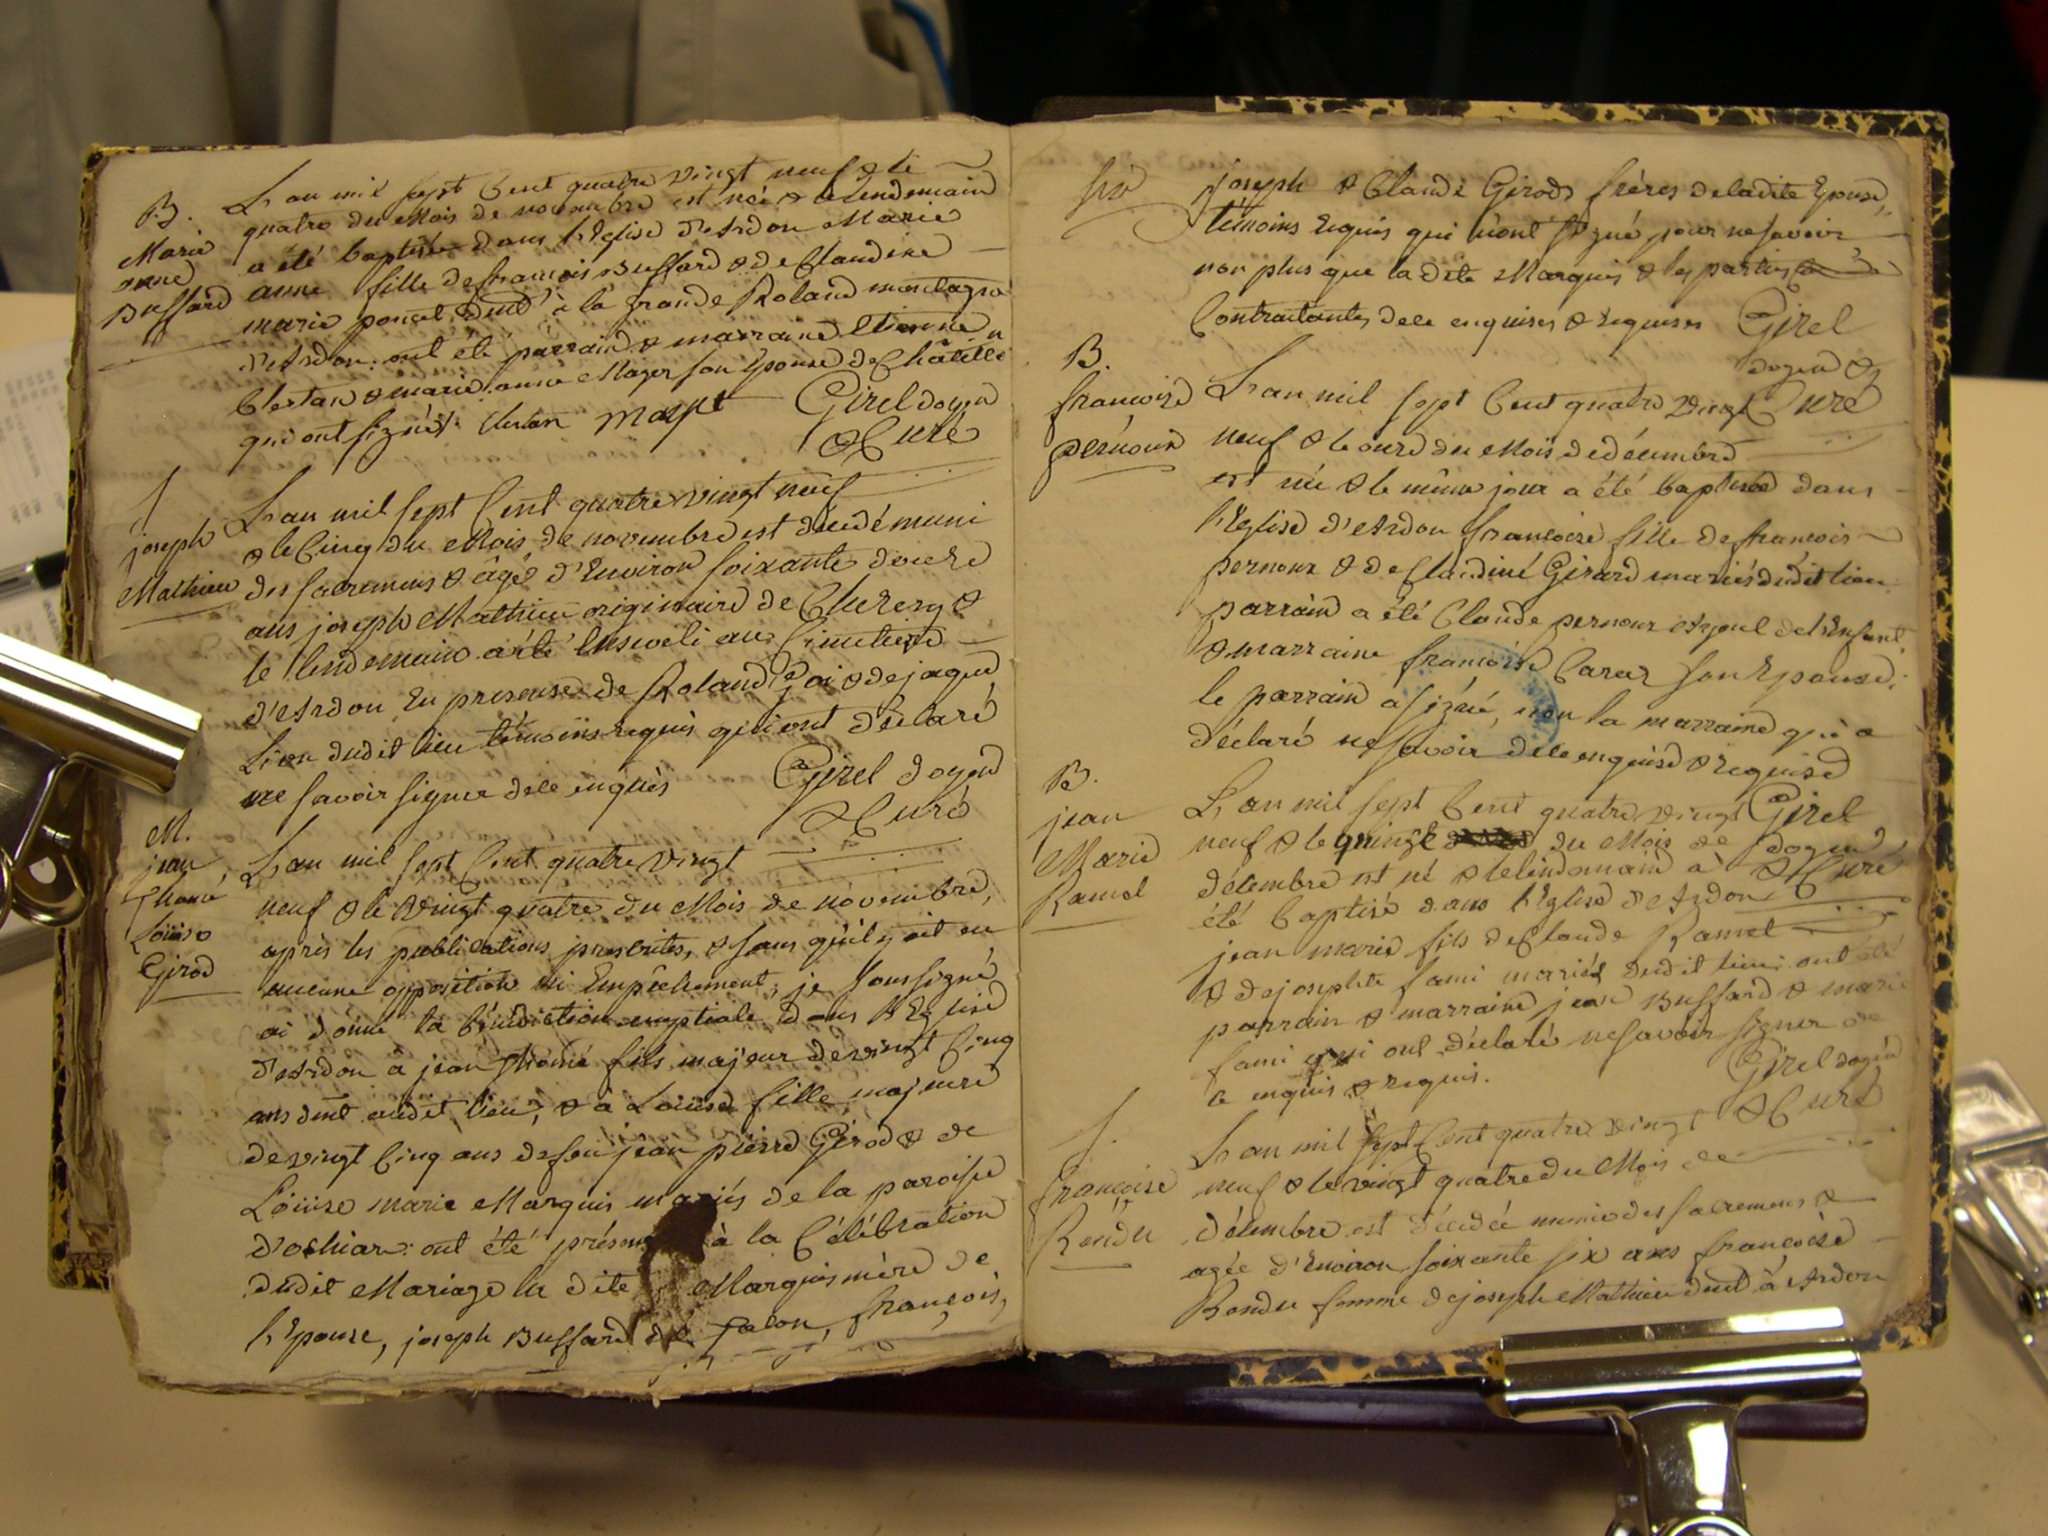 B.
Marie
anne
Buffard
L'an mil sept Cent quatre vingt neuf & le
quatre du Mois de novembre est née & le lendemain
a été baptisée dans l'Eglise d'Ardon Marie
anne fille de francois Buffard & de Claudine
marie poncet à la grande Roland montagne
d'Ardon. ont été parrain & marraine Etienne
Clertan & marie anne Mager son Epouse de Châtillon
qui ont signés. Girel doyen
& Curé
S
joseph
Mathieu
L'an mil sept Cent quatre vingt neuf
& le Cinq du Mois de novembre est décédé muni
des sacremens & âgé d'Environ soixante douze
ans joseph Mathieu originaire de &
le lendemain a été Enseveli au Cimetiere
d'Ardon En presence de Roland Goi & de jaque
Lion dudit lieu témoins requis qui ont déclaré
ne savoir signer de ce enquis Girel doyen
& Curé
M.
jean
Thomé
Loüise
Girod
L'an mil sept Cent quatre vingt
neuf & le vingt quatre du Mois de novembre,
après les publications prescrites, & sans qu'il y ait eu
aucune opposition ni Empêchement, je soussigné
ai donné la bénédiction nuptiale dans l'Eglise
d'Ardon à jean Thomé fils majeur de vingt Cinq
ans audit lieu, & à Loüise fille majeure
de vingt Cinq ans de feu jean pierre Girod & de
Loüise marie Marquis mariés de la paroisse
d'ochiar: ont été présens à la Célébration
dudit Mariage la dite Marquis mère de
l'Epouse, joseph Buffard de falon, françois,
joseph & Claude Girods fréres de ladite Epouse,
témoins requis qui n'ont signé, pour ne savoir
non plus que la dite Marquis & les parties
Contractantes de ce enquises & requises Girel
doyen &
Curé
B.
françoise
pernoux
L'an mil sept Cent quatre vingt
neuf & le onze du Mois de décembre
est née & le même jour a été baptisée dans
l'Eglise d'Ardon françoise fille de francois
pernoux & de Claudine Girard mariés dudit lieu
parrain a été Claude pernoux Ayeul de l'Enfant,
& marraine françoise Caraz son Epouse:
le parrain a signé, non la marraine qui a
déclaré ne savoir de ce enquise & requise
Girel
doyen
& Curé
B.
jean
Marie
Ramel
L'an mil sept Cent quatre vingt
neuf & le quinze du Mois de
décembre est né & le lendemain a
été baptisé dans l'Eglise d'Ardon
jean marie fils de Claude Ramel
& de josephte fami mariés dudit lieu: ont été
parrain & marraine jean Buffard & marie
fami qui ont déclaré ne savoir signer de
ce enquis & requis. Girel doyen
& Curé
S.
françoise
Rondu
L'an mil sept Cent quatre vingt
neuf & le vingt quatre du Mois de
décembre est décédée munie des sacremens &
agée d'Environ soixante six ans françoise
Rondu femme de joseph Mathieu à Ardon